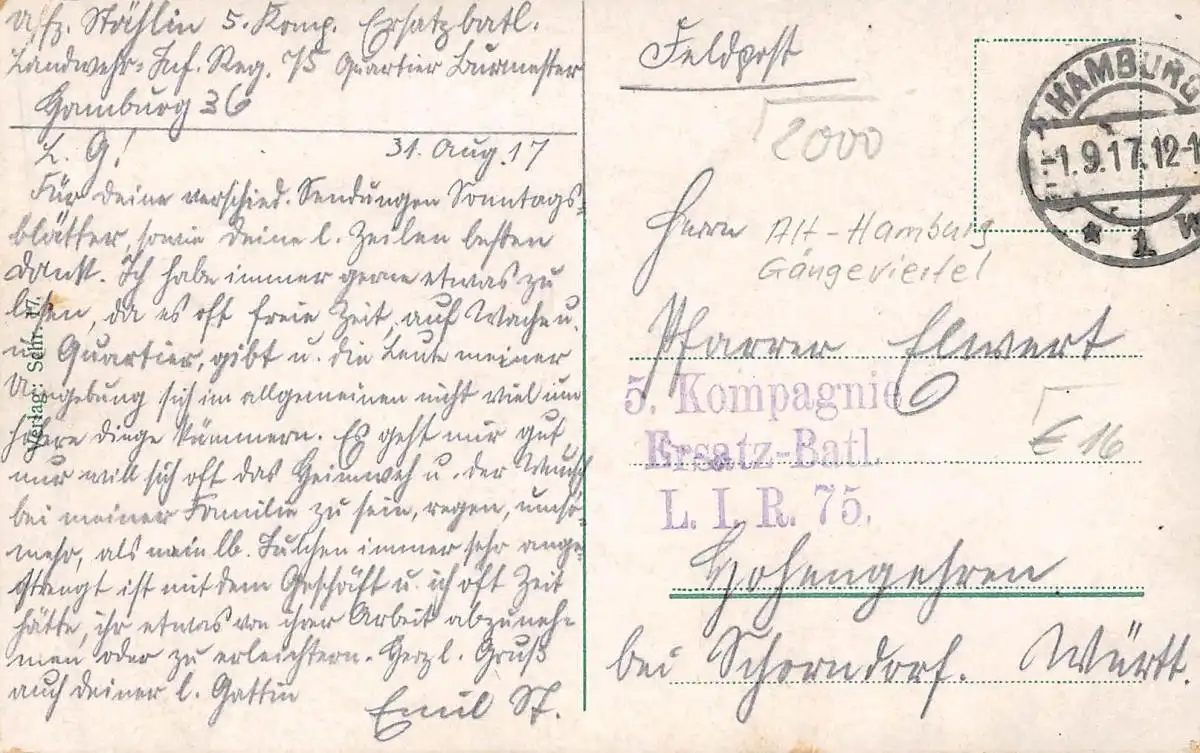 Uffz. Stählin 5. Komp. Ersatzbatl.
Landwehr-Inf. Reg. 75 Quartier Burmester
Hamburg 36
L. G! 31. Aug. 17
Für Deine verschied. Sendungen Sonntags-
blätter, sowie Deine l. Zeilen besten
Dank. Ich habe immer gerne etwas zu
lesen, da es oft freie Zeit, auf Wache u.
im Quartier, gibt u. die Leute meiner
Umgebung sich im allgemeinen nicht viel um
höhere Dinge kümmern. Es geht mir gut,
nur will sich oft das Heimweh u. der Wunsch
bei meiner Familie zu sein, regen, umso-
mehr, als mein lb. immer sehr ange-
strengt ist mit dem Geschäft u. ich oft Zeit
hätte, ihr etwas von ihrer Arbeit abzuneh-
men oder zu erleichtern. Herzl. Gruß
auch Deiner l. Gattin
Emil St.
Verlag: Schr. 17.
Feldpost
HAMBURG
-1.9.17. 12-1
* 1
2000
Herrn Alt-Hamburg
Gängeviertel
Pfarrer Elwert
5. Kompagnie
Ersatz-Batl.
L. I. R. 75.
€ 16
Hohengehren
bei Schorndorf. Württ.